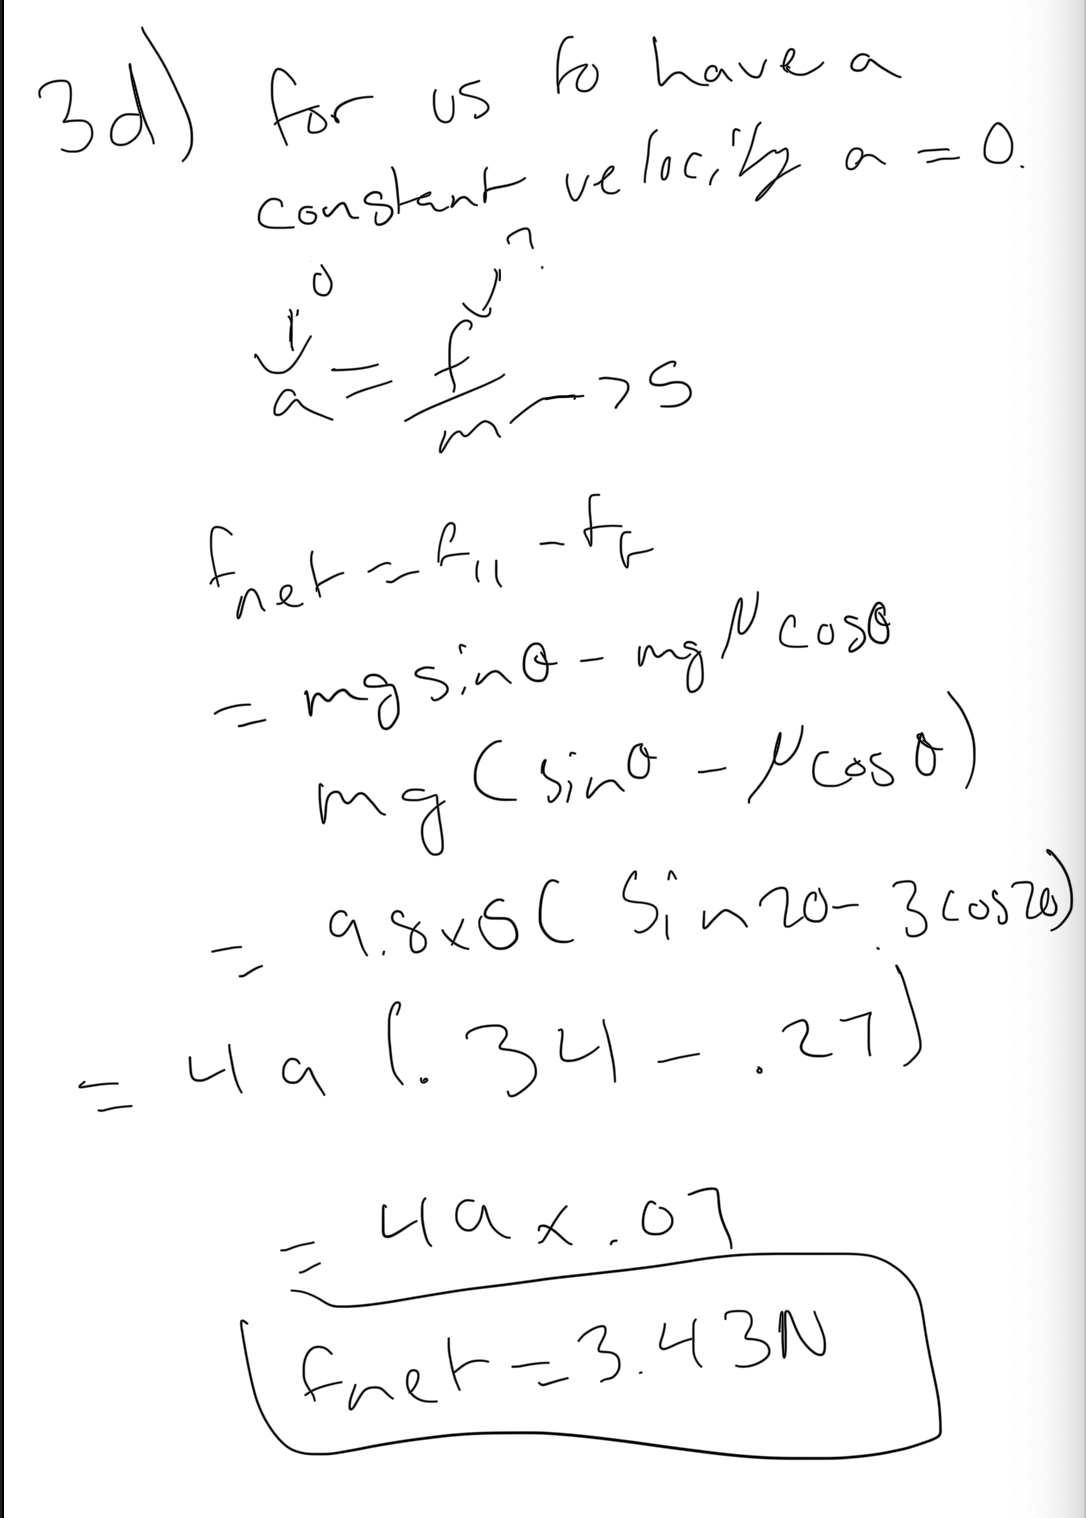 3d) for us to have a
constant velocity a = 0.
0 ?
a = f/m → 5
fnet = f11 - fF
= mg sinθ - mg μ cosθ
mg (sinθ - μ cosθ)
= 9.8x5 ( Sin 20 - .3 cos 20)
= 49 (.34 - .27)
= 49 x .07
fnet = 3.43N